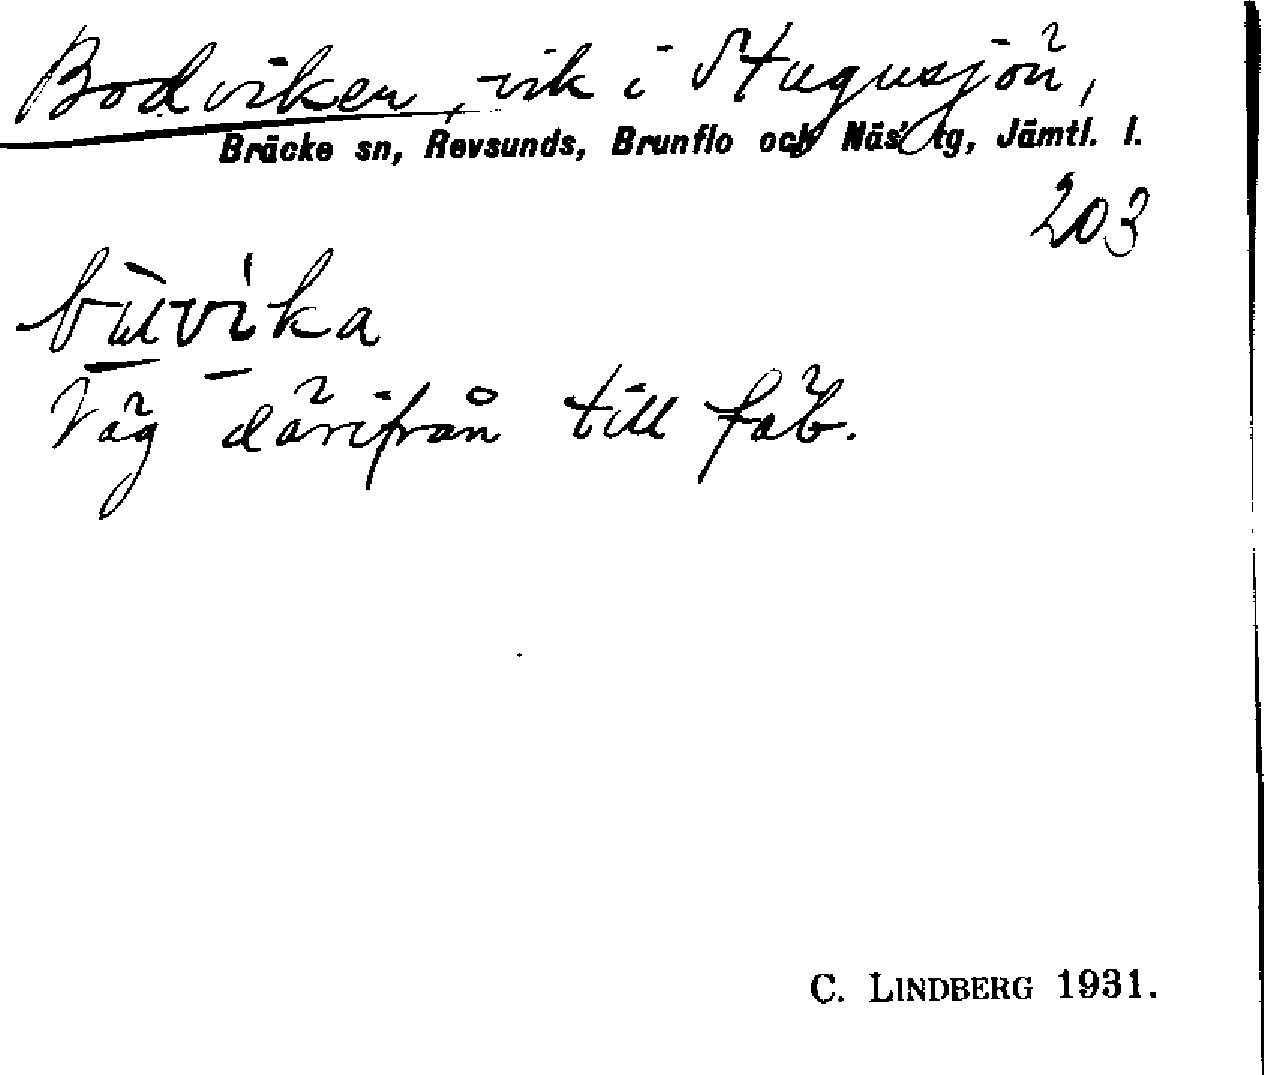 Bodviken, vik i Stugusjön,
Bräcke sn, Revsunds, Brunflo och Näs' tg, Jämtl. l.
203
bùvika
Väg därifrån till fäb.
C. LINDBERG 1931.